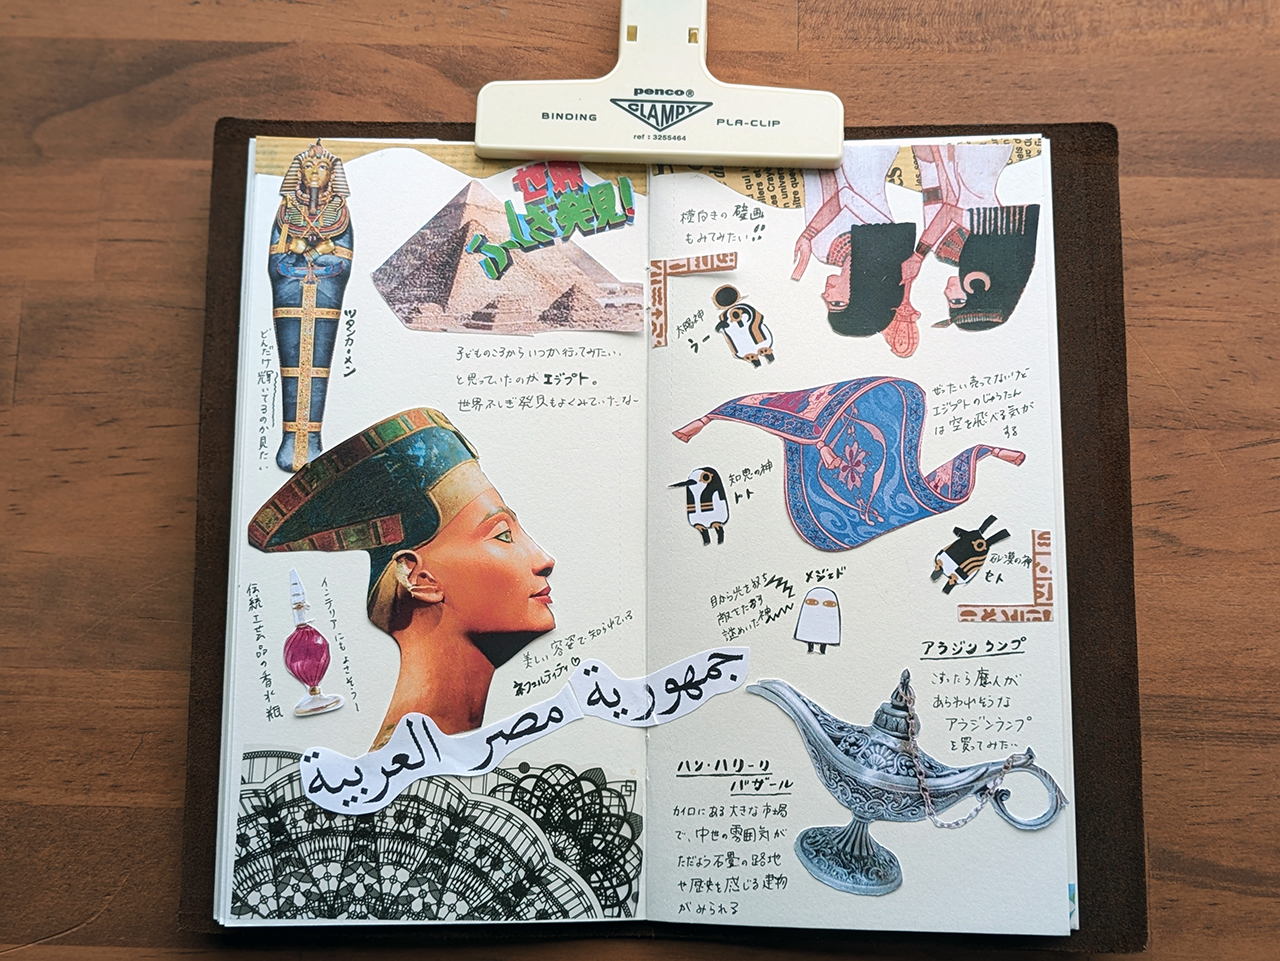 penco®
BINDING
CLAMPY
PLA-CLIP
ref : 3255464
世界
ふしぎ発見!
ツタンカーメン
どんだけ輝いてるのか見たい
子どものころからいつか行ってみたい、
と思っていたのが エジプト。
世界ふしぎ発見もよくみていたなー
伝統工芸品の香水瓶
インテリアにもよさそうー
美しい容姿で知られている
ネフェルティティ♡
جمهورية مصر العربية
横向きの壁画
もみてみたい!!
太陽神
ラー
ぜったい売ってないけど
エジプトのじゅうたん
は空を飛べる気が
する
知恵の神
トト
砂漠の神
セト
メジェド
目から光を放ち
敵をたおす
謎めいた神
アラジンランプ
こすったら魔人が
あらわれそうな
アラジンランプ
を買ってみたい…
ハン・ハリーリ
バザール
カイロにある大きな市場
で、中世の雰囲気が
ただよう石畳の路地
や歴史を感じる建物
がみられる